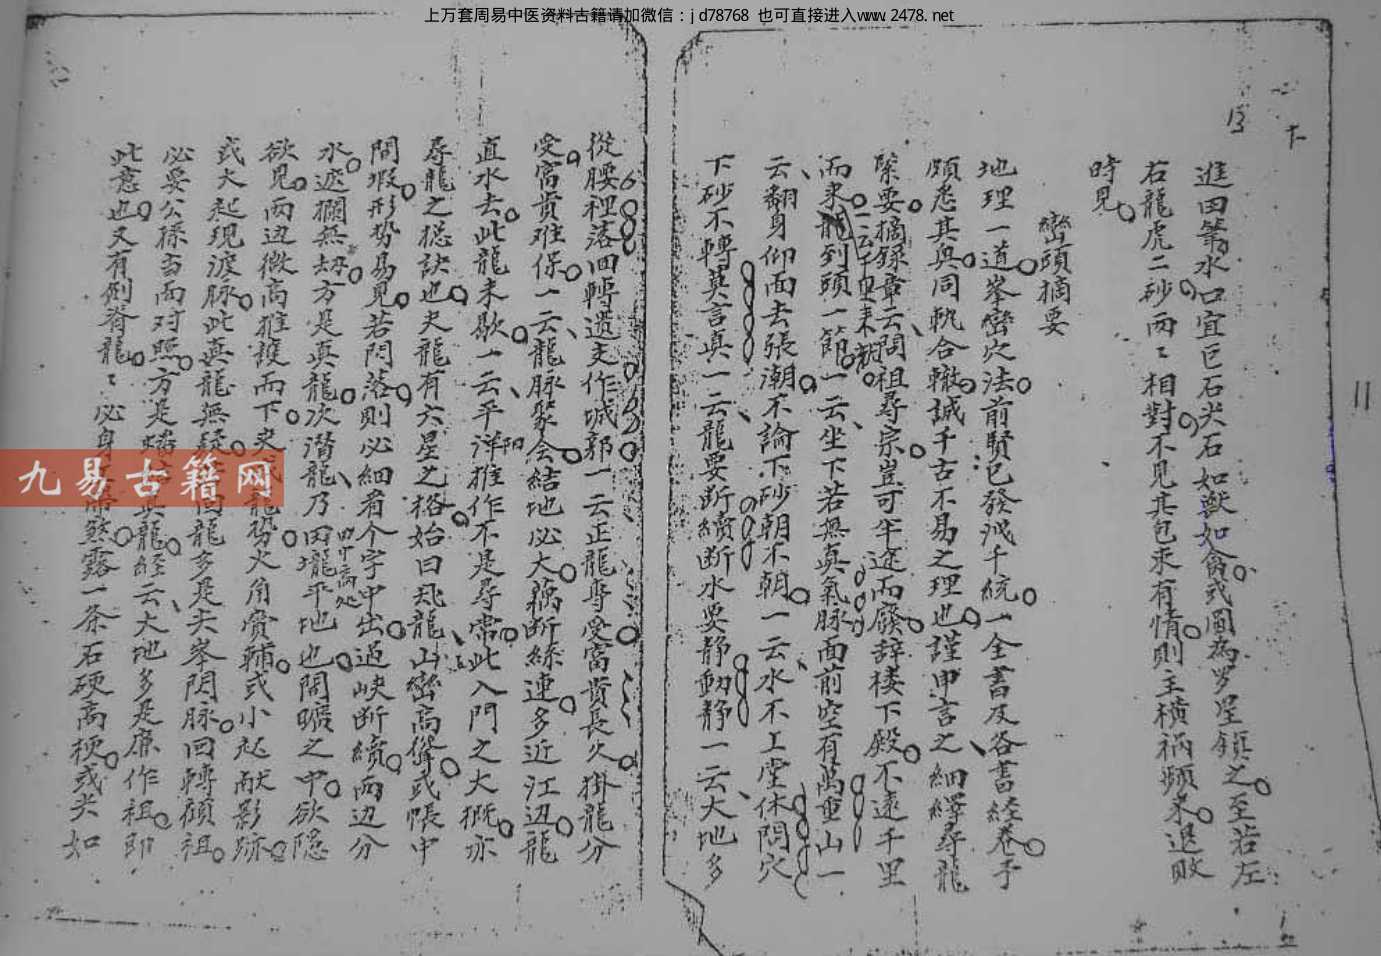 上万套周易中医资料古籍请加微信：jd78768 也可直接进入www.2478.net
進田筆水口宜巨石尖石如獸如禽或圓為罗星鎮之至若左
右龍虎二砂両〻相對不見其包求有情則主橫祸頻来退敗
時見
巒頭摘要
地理一道峯巒穴法前賢已發洩千統一全書及各書經卷予
頗悉其奥同軌合轍誠千古不易之理也謹申言之細繹尋龍
緊要摘録章云問祖尋宗豈可半途而廢辞楼下殿不遠千里
而来龍到頭一節一云坐下若無真氣脉面前空有萬重山一
一云千里来龍
云翻身仰面去張潮不論下砂朝不朝一云水不上堂休問穴
下砂不轉莫言真一云龍要断續断水要静動静一云大地多
從腰裡落回轉遗支作城郭一云正龍専受富貴長久掛龍分
受富貴难保一云龍脉聚会結地必大藕断絲連多近江辺龍
直水去此龍未歇一云平洋推作不是尋常此入門之大概亦
尋龍之総訣也夫龍有六星之格始曰飛龍山巒高聳或帳中
間塅形势易見若閃落則必細看个字中出過峡断續两辺分
水遮攔無刼方是真龍次潛龍乃田壠平地也闊曠之中欲隠
田中高处
欲見两边微高推擁而下夹龍勞火角賔輔或小起献影跡
或大起現渡脉此真龍無疑回龍多是夫峯閃脉回轉顧祖
必要公孫当面对照方是真龍経云大地多是廉作祖即
此意也又有倒脊龍〻必身煞露一条石硬高梗或尖如
下
11
九易古籍网